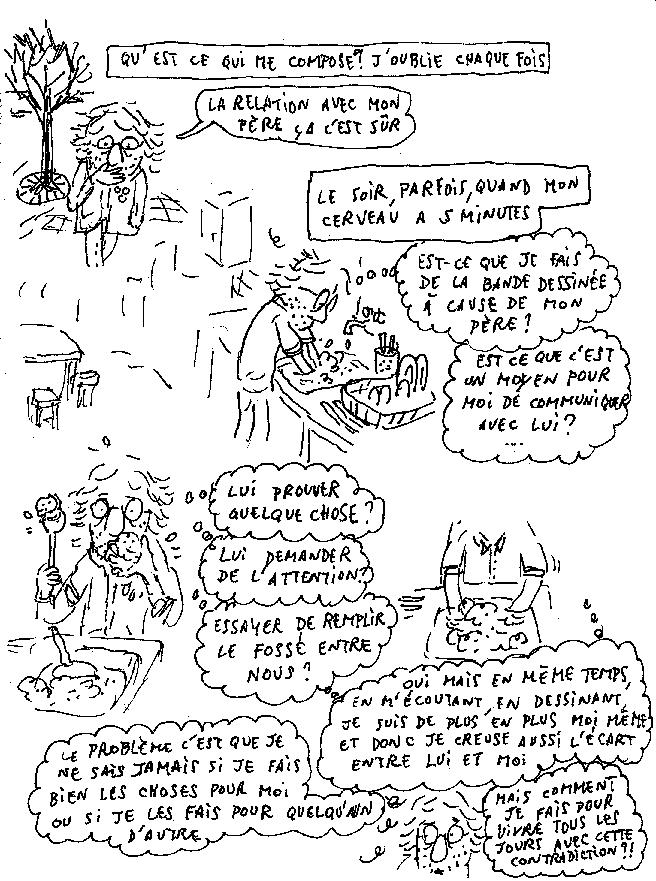 QU'EST CE QUI ME COMPOSE? J'OUBLIE CHAQUE FOIS
LA RELATION AVEC MON
PÈRE ÇA C'EST SÛR
LE SOIR, PARFOIS, QUAND MON
CERVEAU A 5 MINUTES
EST-CE QUE JE FAIS
DE LA BANDE DESSINÉE
À CAUSE DE MON
PÈRE?
EST CE QUE C'EST
UN MOYEN POUR
MOI DE COMMUNIQUER
AVEC LUI?
...
LUI PROUVER
QUELQUE CHOSE?
LUI DEMANDER
DE L'ATTENTION?
ESSAYER DE REMPLIR
LE FOSSÉ ENTRE
NOUS?
OUI MAIS EN MÊME TEMPS,
EN M'ÉCOUTANT, EN DESSINANT,
JE SUIS DE PLUS EN PLUS MOI MÊME
ET DONC JE CREUSE AUSSI L'ÉCART
ENTRE LUI ET MOI
LE PROBLÈME C'EST QUE JE
NE SAIS JAMAIS SI JE FAIS
BIEN LES CHOSES POUR MOI
OU SI JE LES FAIS POUR QUELQU'UN
D'AUTRE
MAIS COMMENT
JE FAIS POUR
VIVRE TOUS LES
JOURS AVEC CETTE
CONTRADICTION?!